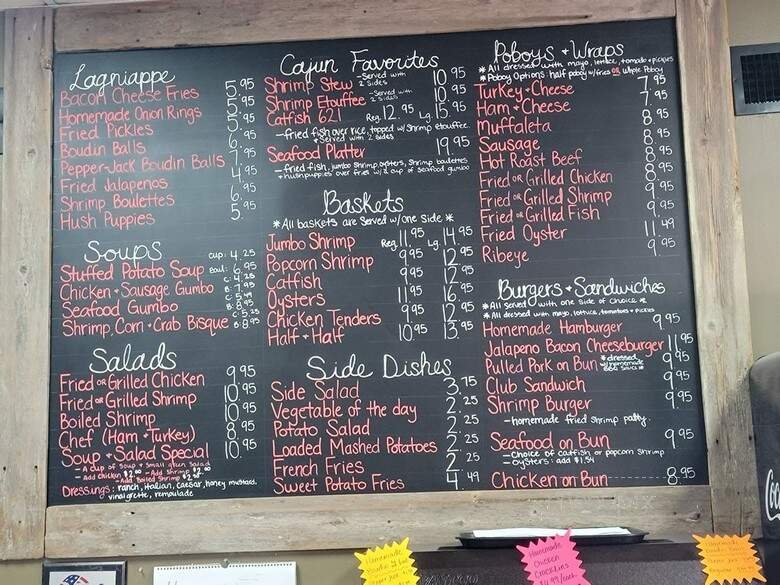 Lagniappe
Bacon Cheese Fries 5.95
Homemade Onion Rings 5.95
Fried Pickles 5.95
Boudin Balls 6.95
Pepper-Jack Boudin Balls 7.95
Fried Jalapenos 4.95
Shrimp Boulettes 6.95
Hush Puppies 5.95
Soups
Stuffed Potato Soup cup: 4.25 bowl: 6.95
Chicken + Sausage Gumbo C: 4.25 B: 7.95
Seafood Gumbo C: 5.49 B: 8.95
Shrimp, Corn + Crab Bisque C: 5.25 B: 8.95
Salads
Fried or Grilled Chicken 9.95
Fried or Grilled Shrimp 10.95
Boiled Shrimp 10.95
Chef (Ham + Turkey) 8.95
Soup + Salad Special 10.95
- A cup of soup + small green salad
- add chicken $2.00 - Add Shrimp $2.00
- Add Boiled Shrimp
Dressings: ranch, italian, caesar, honey mustard,
vinaigrette, remoulade
Cajun Favorites
Shrimp Stew - Served with 2 sides 10.95
Shrimp Etouffee - Served with 2 sides 10.95
Catfish 621 Reg. 12.95 Lg. 15.95
- fried fish over rice, topped w/ shrimp etouffee.
* Served with 2 sides
Seafood Platter 19.95
- fried fish, jumbo shrimp, oysters, shrimp boulettes
+ hushpuppies over fries w/ a cup of seafood gumbo
Baskets
* All baskets are served w/one side *
Jumbo Shrimp Reg. 11.95 Lg. 14.95
Popcorn Shrimp 9.95 12.95
Catfish 9.95 12.95
Oysters 11.95 16.95
Chicken Tenders 9.95 12.95
Half + Half 10.95 13.95
Side Dishes
Side Salad 3.75
Vegetable of the day 2.25
Potato Salad 2.25
Loaded Mashed Potatoes 2.25
French Fries 2.25
Sweet Potato Fries 4.49
Poboys + Wraps
* All dressed with mayo, lettuce, tomato + pickles
* Poboy Options: half poboy w/fries OR whole Poboy
Turkey + Cheese 7.95
Ham + Cheese 7.95
Muffaleta 8.95
Sausage 8.95
Hot Roast Beef 8.95
Fried or Grilled Chicken 8.95
Fried or Grilled Shrimp 9.95
Fried or Grilled Fish 9.95
Fried Oyster 11.49
Ribeye 9.95
Burgers + Sandwiches
* All served with one side of choice *
* All dressed with mayo, lettuce, tomatoes + pickles
Homemade Hamburger 9.95
Jalapeno Bacon Cheeseburger 11.95
Pulled Pork on Bun * dressed w/homemade BBQ sauce * 9.95
Club Sandwich 9.95
Shrimp Burger 9.95
- homemade fried shrimp patty.
Seafood on Bun 9.95
- Choice of catfish or popcorn shrimp
- oysters: add $1.54
Chicken on Bun 8.95
Homemade
Homemade
Chicken
Cracklins